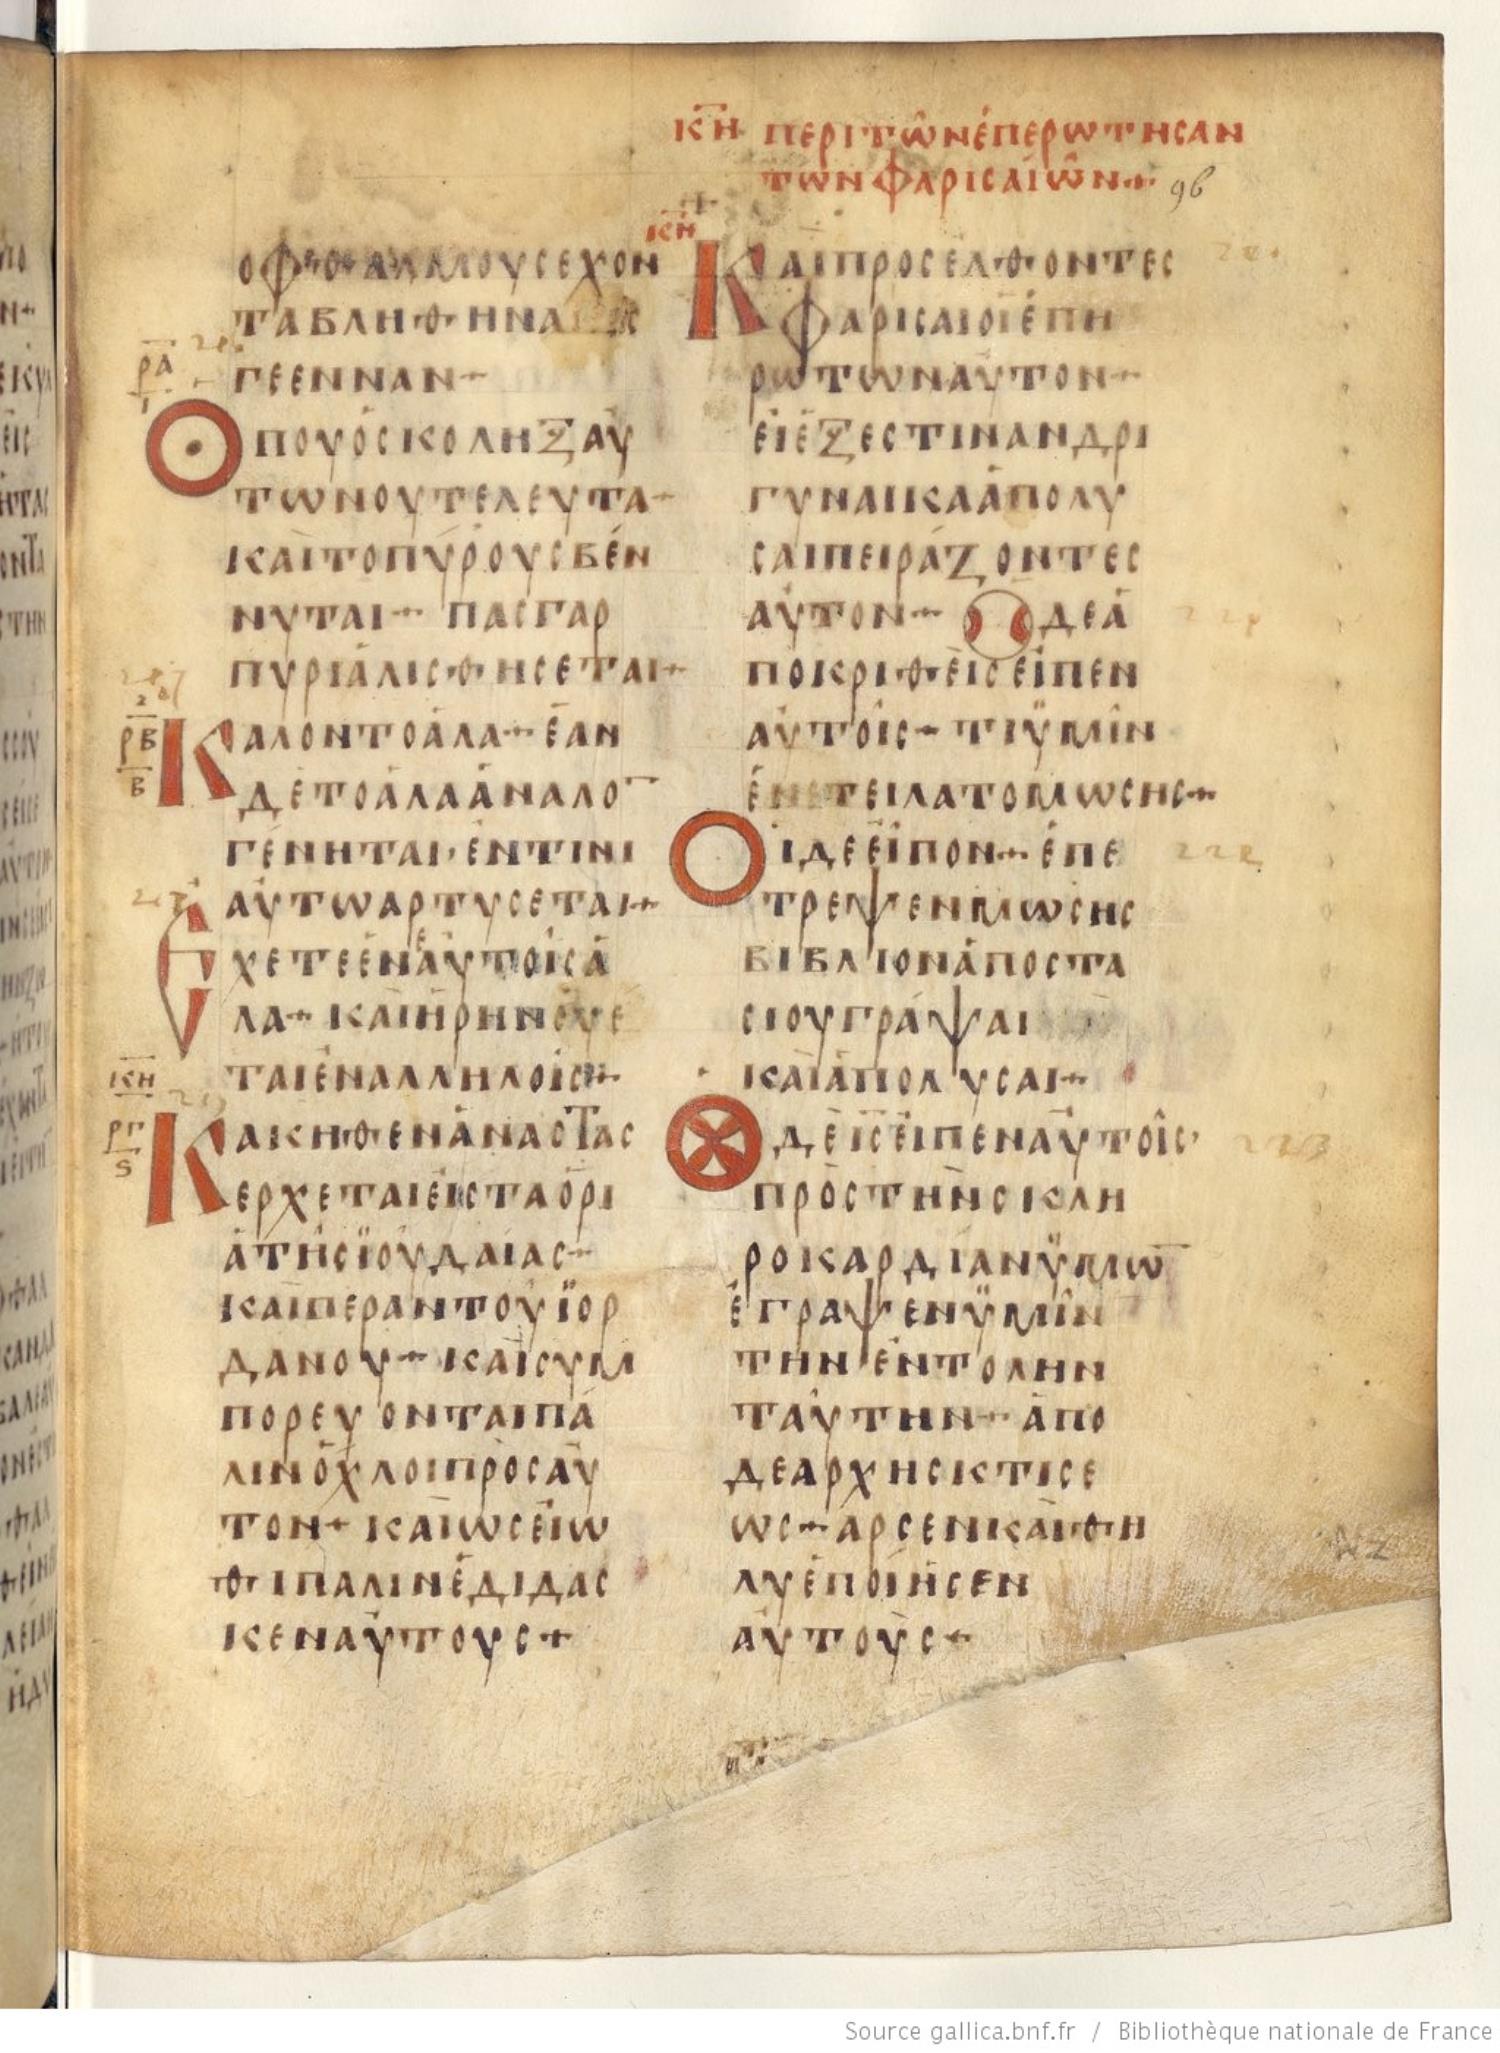 κη περιτῶνἐπερωτησαν
τωνφαρισαίῶν+ 96
οφθαλμουσεχον
ταβληθηναι
γεενναν+
ρα
ι
οπουόσκοληξαυ
τωνουτελευτα+
καὶτοπῦρουσβέν
νυται+ πασγαρ
πυριἁλισθησεται+
ρβ
β
καλοντοάλα+ ἐαν
δὲτοάλαἄναλο̅
γένηται·ἐντινι
αὐτωαρτυσεται+
ἐχετεἐνἑαυτοῖσἅ
λα+ καὶἠρηνευε
ταιἐναλληλοίσ+
κη
ργ
ς
κακηθενἀναστασ
ερχεταιεἰσταὅρι
ἀτῆσϊούδαιασ+
καὶπεραντοῦϊορ
δανου+ καὶσυμ
πορευονταιπά
λινὄχλοιπρὸσαὐ
τον+ καὶωσεἰω
θιπαλινἐδιδασ
κεναὐτουσ+
κη
καιπροσελθοντεσ
φαρισαιοιἐπη
ρωτωναὐτον+
εἰἐξεστινανδρι
γυναικαἀπολυ
σαιπειράζοντεσ
αὐτον+ οδεἀ
ποκριθεὶσεἶπεν
αὐτοῖσ+ τιϋμῖν
ἐνετειλατομωσησ+
οιδεεἶπον+ ἐπε
τρεψενμωσησ
βιβλιονἀποστα
σιουγράψαι
καὶἀπολυσαι+
οδὲι̅σ̅εἰπεναὐτοῖσ·
πρὸστὴνσκλη
ροκαρδίανϋμω̅
ἐγραψενϋμῖν
τηνἐντολην
ταύτην+ ἀπο
δεαρχησκτισε
ωσ+ἀρσενκαὶθη
λυἐποίησεν
αὐτοὺσ+
Source gallica.bnf.fr / Bibliothèque nationale de France